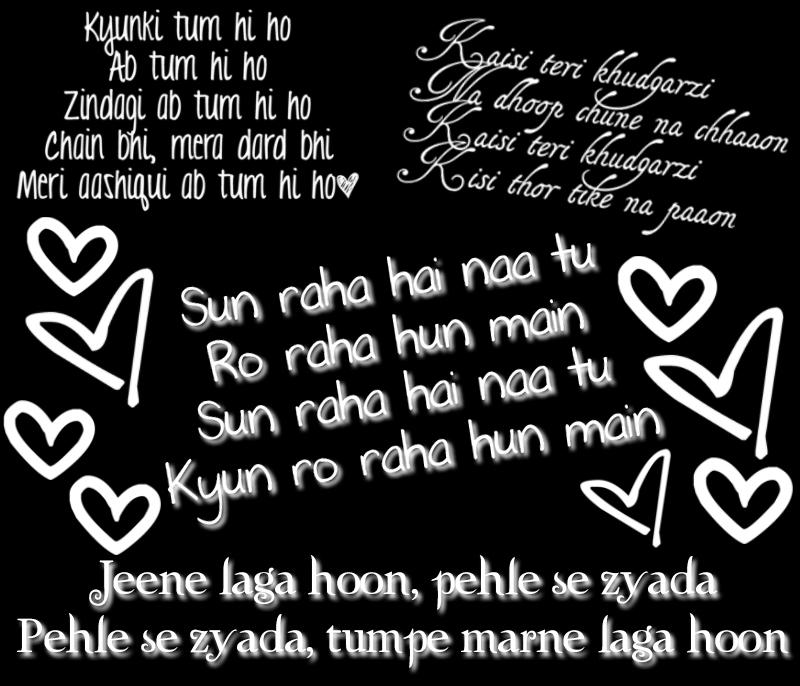 Kyunki tum hi ho
Ab tum hi ho
Zindagi ab tum hi ho
Chain bhi, mera dard bhi
Meri aashiqui ab tum hi ho
Kaisi teri khudgarzi
Na dhoop chune na chhaaon
Kaisi teri khudgarzi
Kisi thor tike na paaon
Sun raha hai naa tu
Ro raha hun main
Sun raha hai naa tu
Kyun ro raha hun main
Jeene laga hoon, pehle se zyada
Pehle se zyada, tumpe marne laga hoon